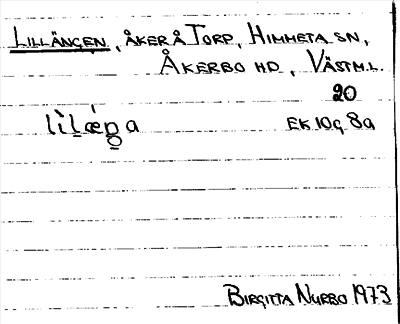 LILLÄNGEN, ÅKER Å TORP, HIMMETA SN,
ÅKERBO HD, VÄSTM.L.
20
EK 10G 8a
BIRGITTA NURBO 1973